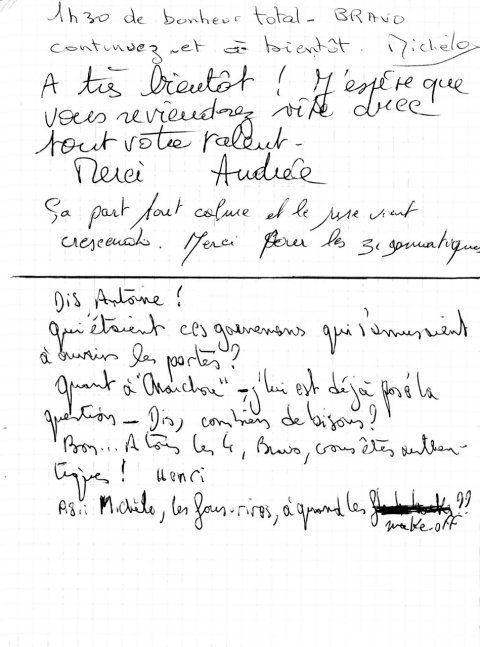 1h30 de bonheur total - BRAVO
continuez et à bientôt. Michèle
A très bientôt ! J'espère que
vous reviendrez vite avec
tout votre talent -
Merci Andrée
Ça part tout calme et le rire vient
crescendo. Merci pour les zygomatiques
Dis Antoine !
Qui étaient ces garnemens qui s'amusaient
à ouvrir les portes ?
Quant à " " - j'lui est déjà posé la
question - Dis, combien de bisous ?
Bon... A tous les 4, Bravo, vous êtes authen-
tiques ! Henri
Michèle, les fous-rires, à quand les ??
make-off